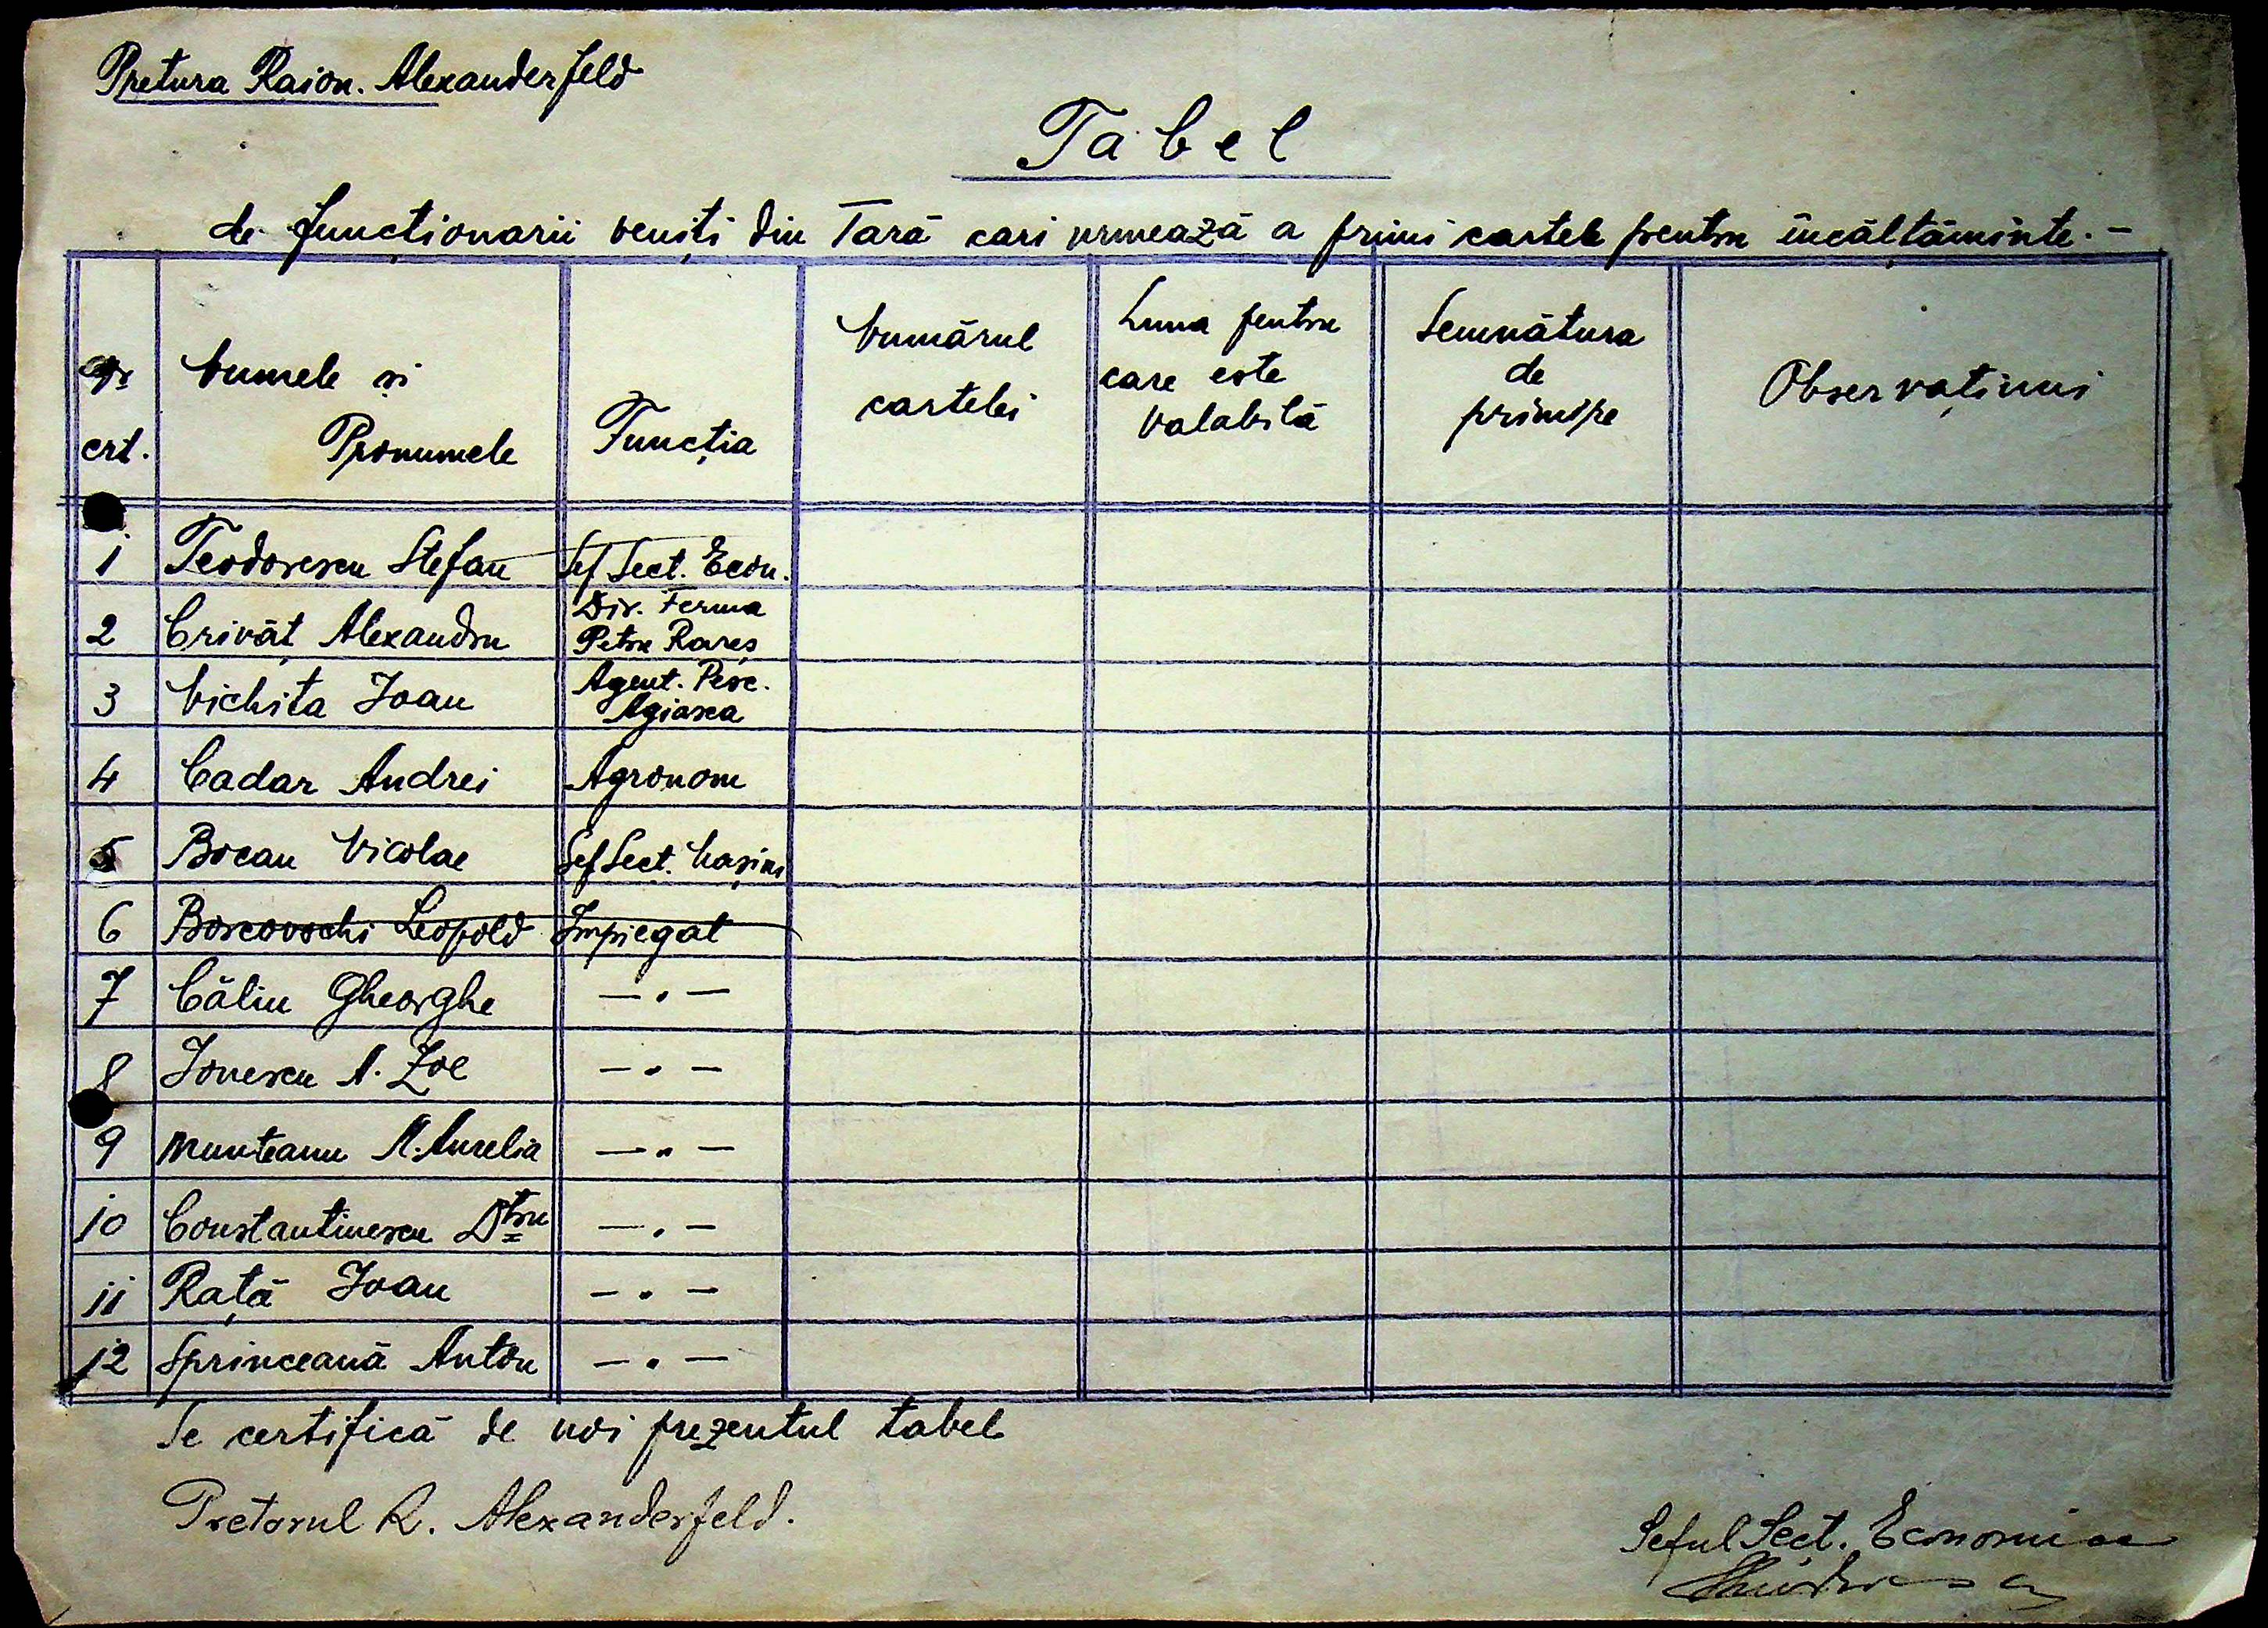 Pretura Raion. Alexanderfeld
Tabel
de funcționarii veniți din Țară cari urmează a primi cartele pentru încălțăminte.-
Nr
crt.
Numele și
Pronumele
Funcția
Numărul
cartelei
Luna pentru
care este
valabilă
Semnătura
de
primire
Observațiuni
1 Teodorescu Stefan Sef Sect. Econ.
2 Crivăț Alexandru Dir. Ferma
Petru Rareș
3 Nichita Ioan Agent. Pesc.
Agiasca
4 Cadar Andrei Agronom
5 Bocan Nicolae Sef Sect. Mașini
6 Boscovschi Leopold Impiegat
7 Călin Gheorghe -"-
8 Ionescu A. Zoe -"-
9 Munteanu M. Aurelia -"-
10 Constantinescu Dtru -"-
11 Rață Ioan -"-
12 Sprinceană Anton -"-
Se certifică de noi prezentul tabel
Pretorul R. Alexanderfeld.
Seful Sect. Economice